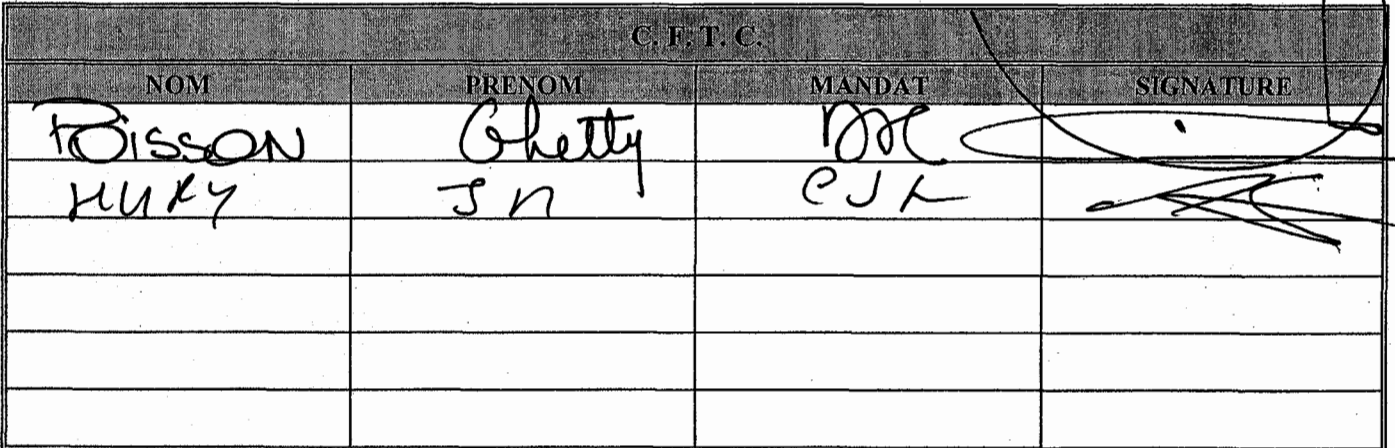 C. F. T. C.
NOM PRENOM MANDAT SIGNATURE
POISSON Ghetty
HURY